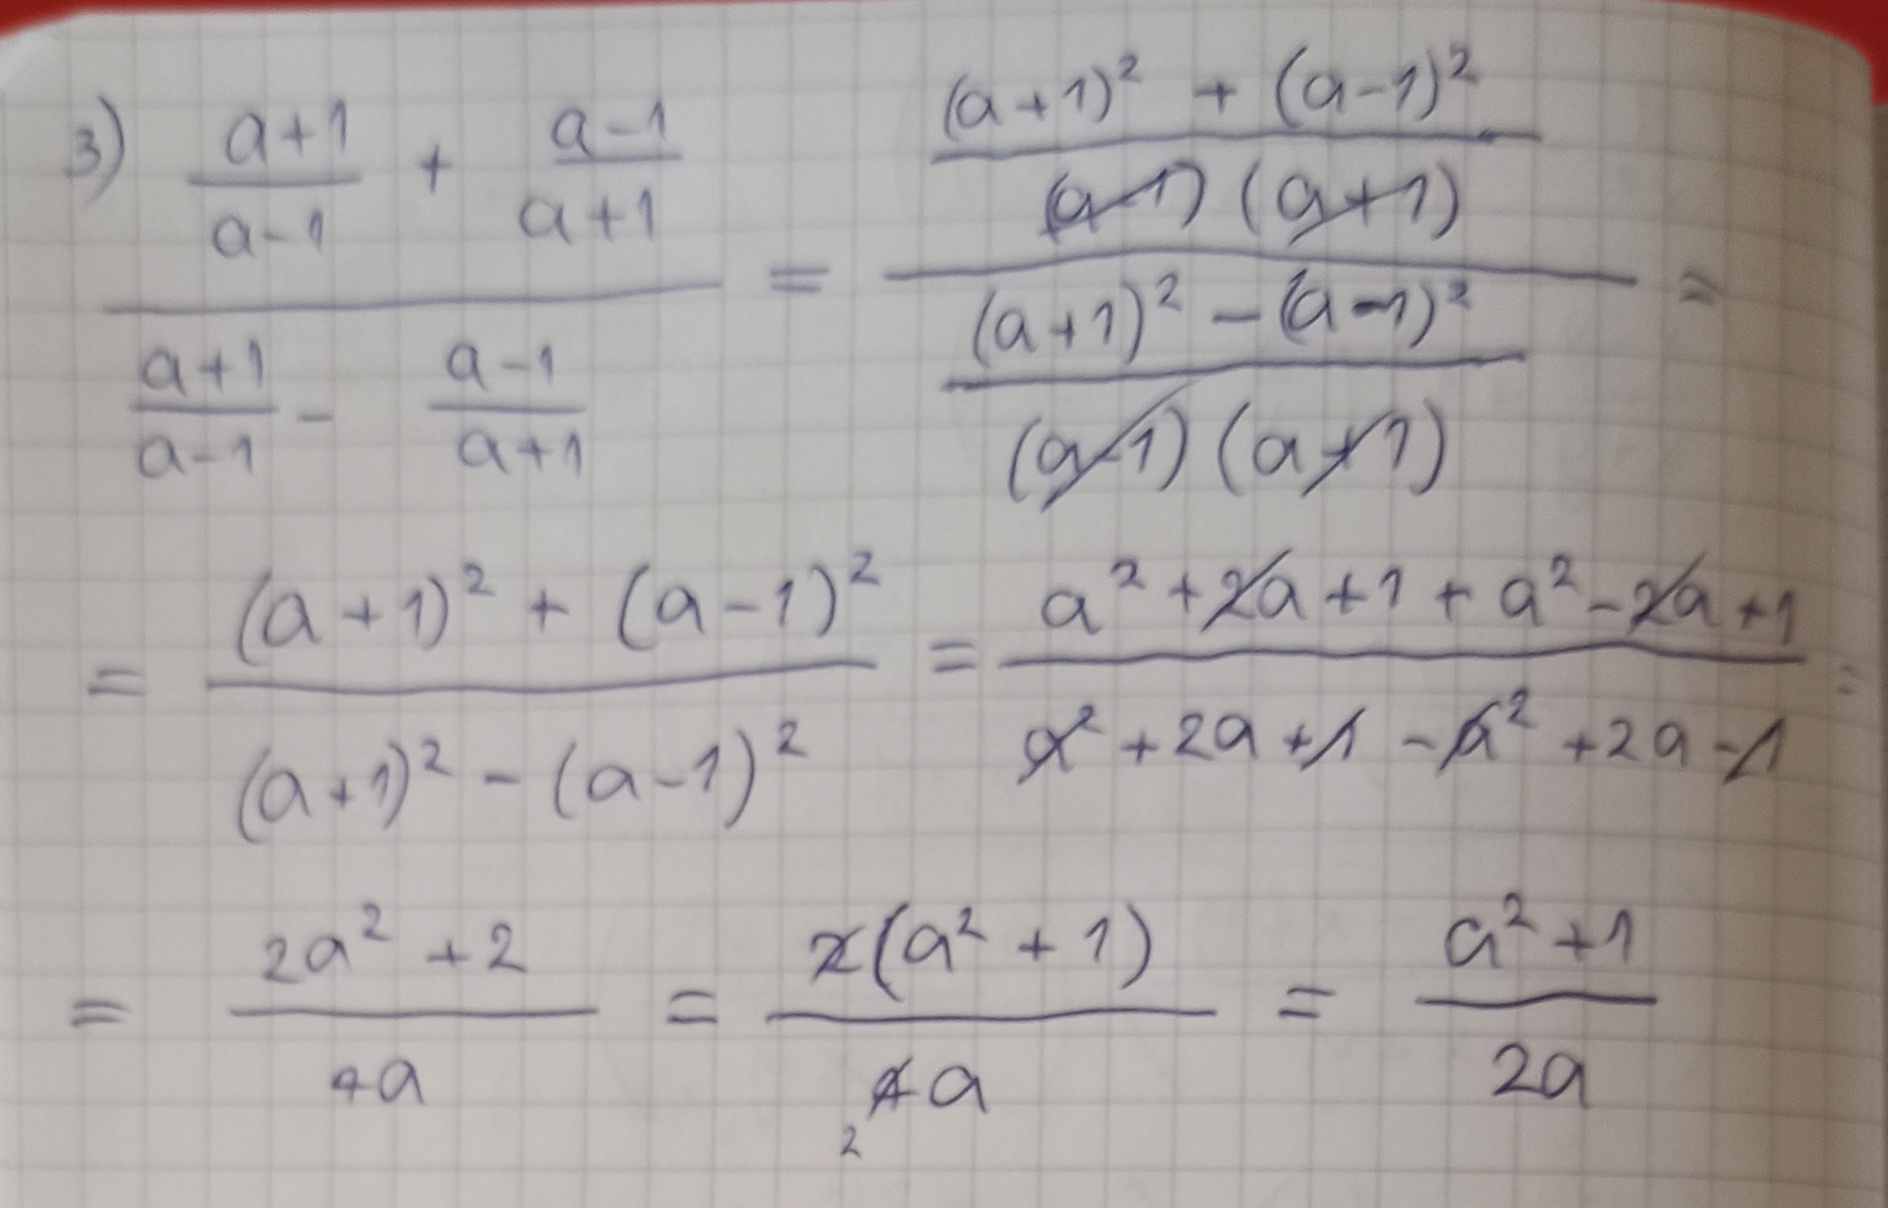 3) \frac{\frac{a+1}{a-1} + \frac{a-1}{a+1}}{\frac{a+1}{a-1} - \frac{a-1}{a+1}} = \frac{\frac{(a+1)^2 + (a-1)^2}{(a-1)(a+1)}}{\frac{(a+1)^2 - (a-1)^2}{(a-1)(a+1)}} =
= \frac{(a+1)^2 + (a-1)^2}{(a+1)^2 - (a-1)^2} = \frac{a^2 + 2a + 1 + a^2 - 2a + 1}{a^2 + 2a + 1 - a^2 + 2a - 1} =
= \frac{2a^2 + 2}{4a} = \frac{2(a^2 + 1)}{4a \; 2} = \frac{a^2 + 1}{2a}